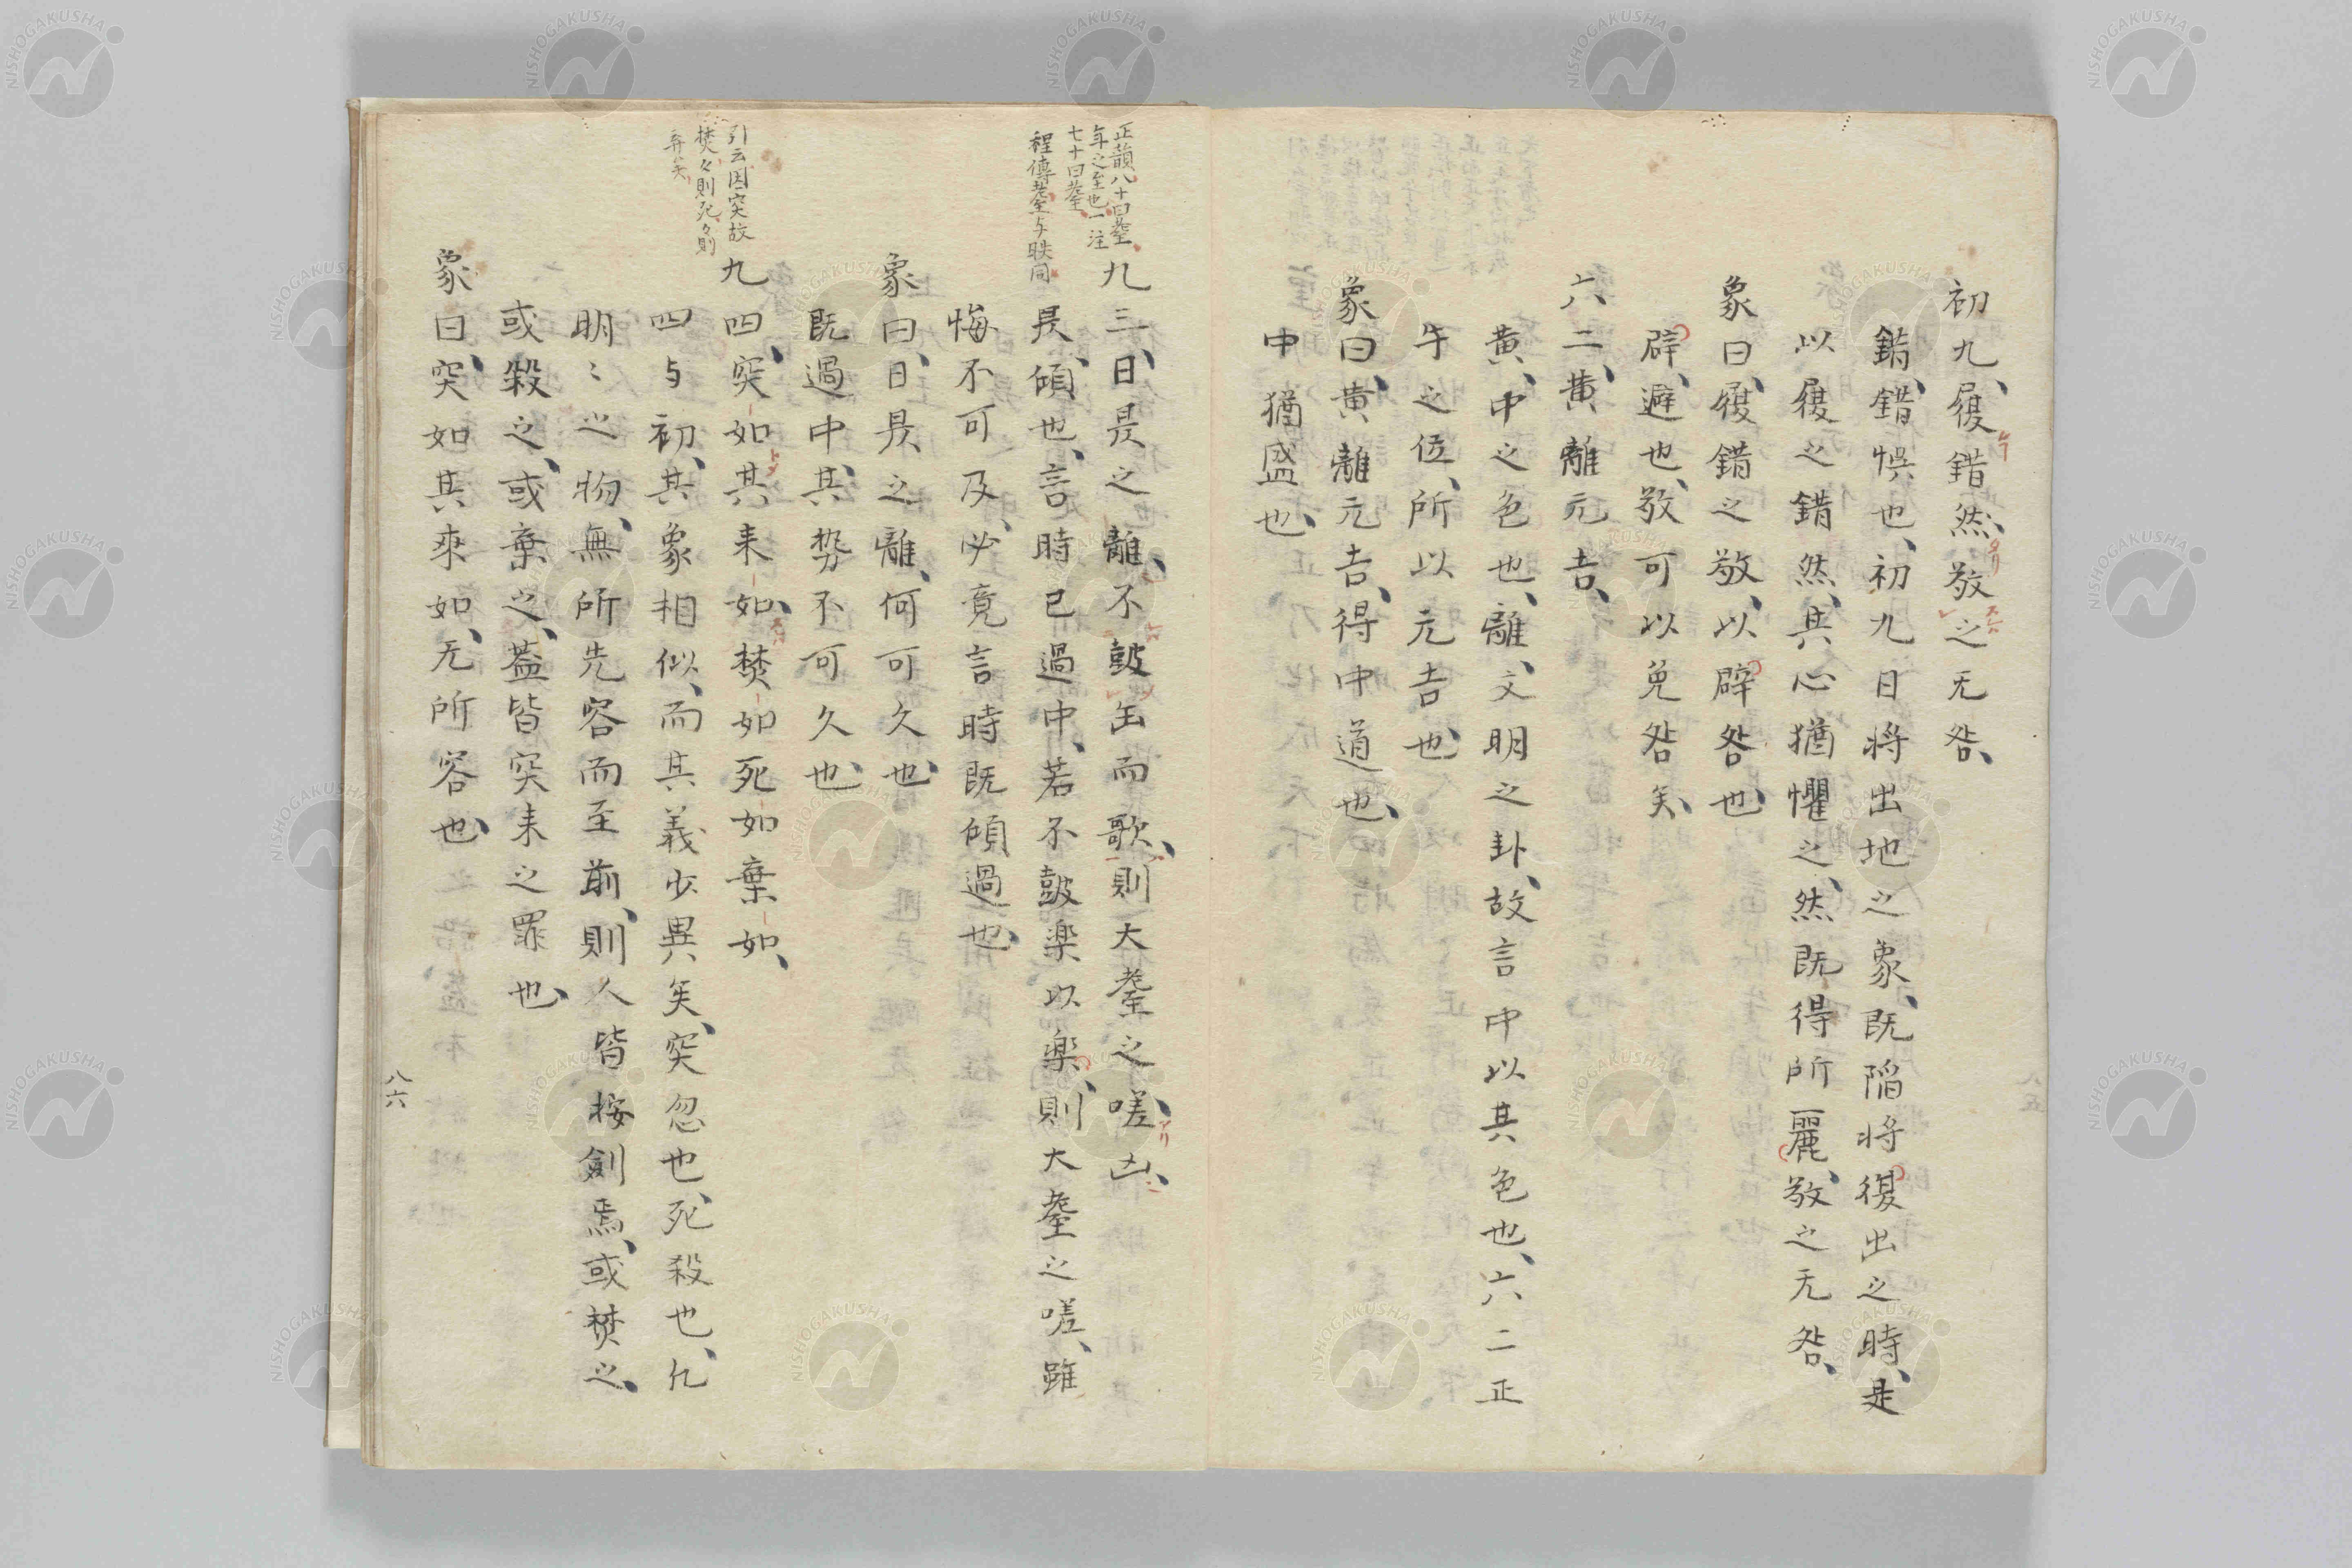 初九、履錯然、敬之无咎、
錯、錯悞也、初九日将出地之象、既陷将復出之時、是
以履之錯然、其心猶懼之、然既得所麗、敬之无咎、
象曰、履錯之敬、以辟咎也、
辟、避也、敬可以免咎矣、
六二、黄離元吉、
黄、中之色也、離、文明之卦、故言中以其色也、六二正
午之位、所以元吉也、
象曰、黄離元吉、得中道也、
中猶盛也、
正韻八十曰耋
年之至也一注
七十曰耋
程傳耋与昳同
九三、日昃之離、不鼓缶而歌、則大耋之嗟、凶、
昃、傾也、言時已過中、若不鼓楽以楽、則大耋之嗟、雖
悔不可及、必竟言時既傾過也、
象曰、日昃之離、何可久也、
既過中、其勢不可久也、
引云因突故
焚々則死々則
弃矣
九四、突如其来如、焚如死如棄如、
四与初、其象相似、而其義少異矣、突忽也、死殺也、凡
明〻之物、無所先容而至前、則人皆按劍焉、或焚之、
或殺之、或棄之、蓋皆突来之罪也、
象曰、突如其来如、无所容也、
八六
NISHOGAKUSHA